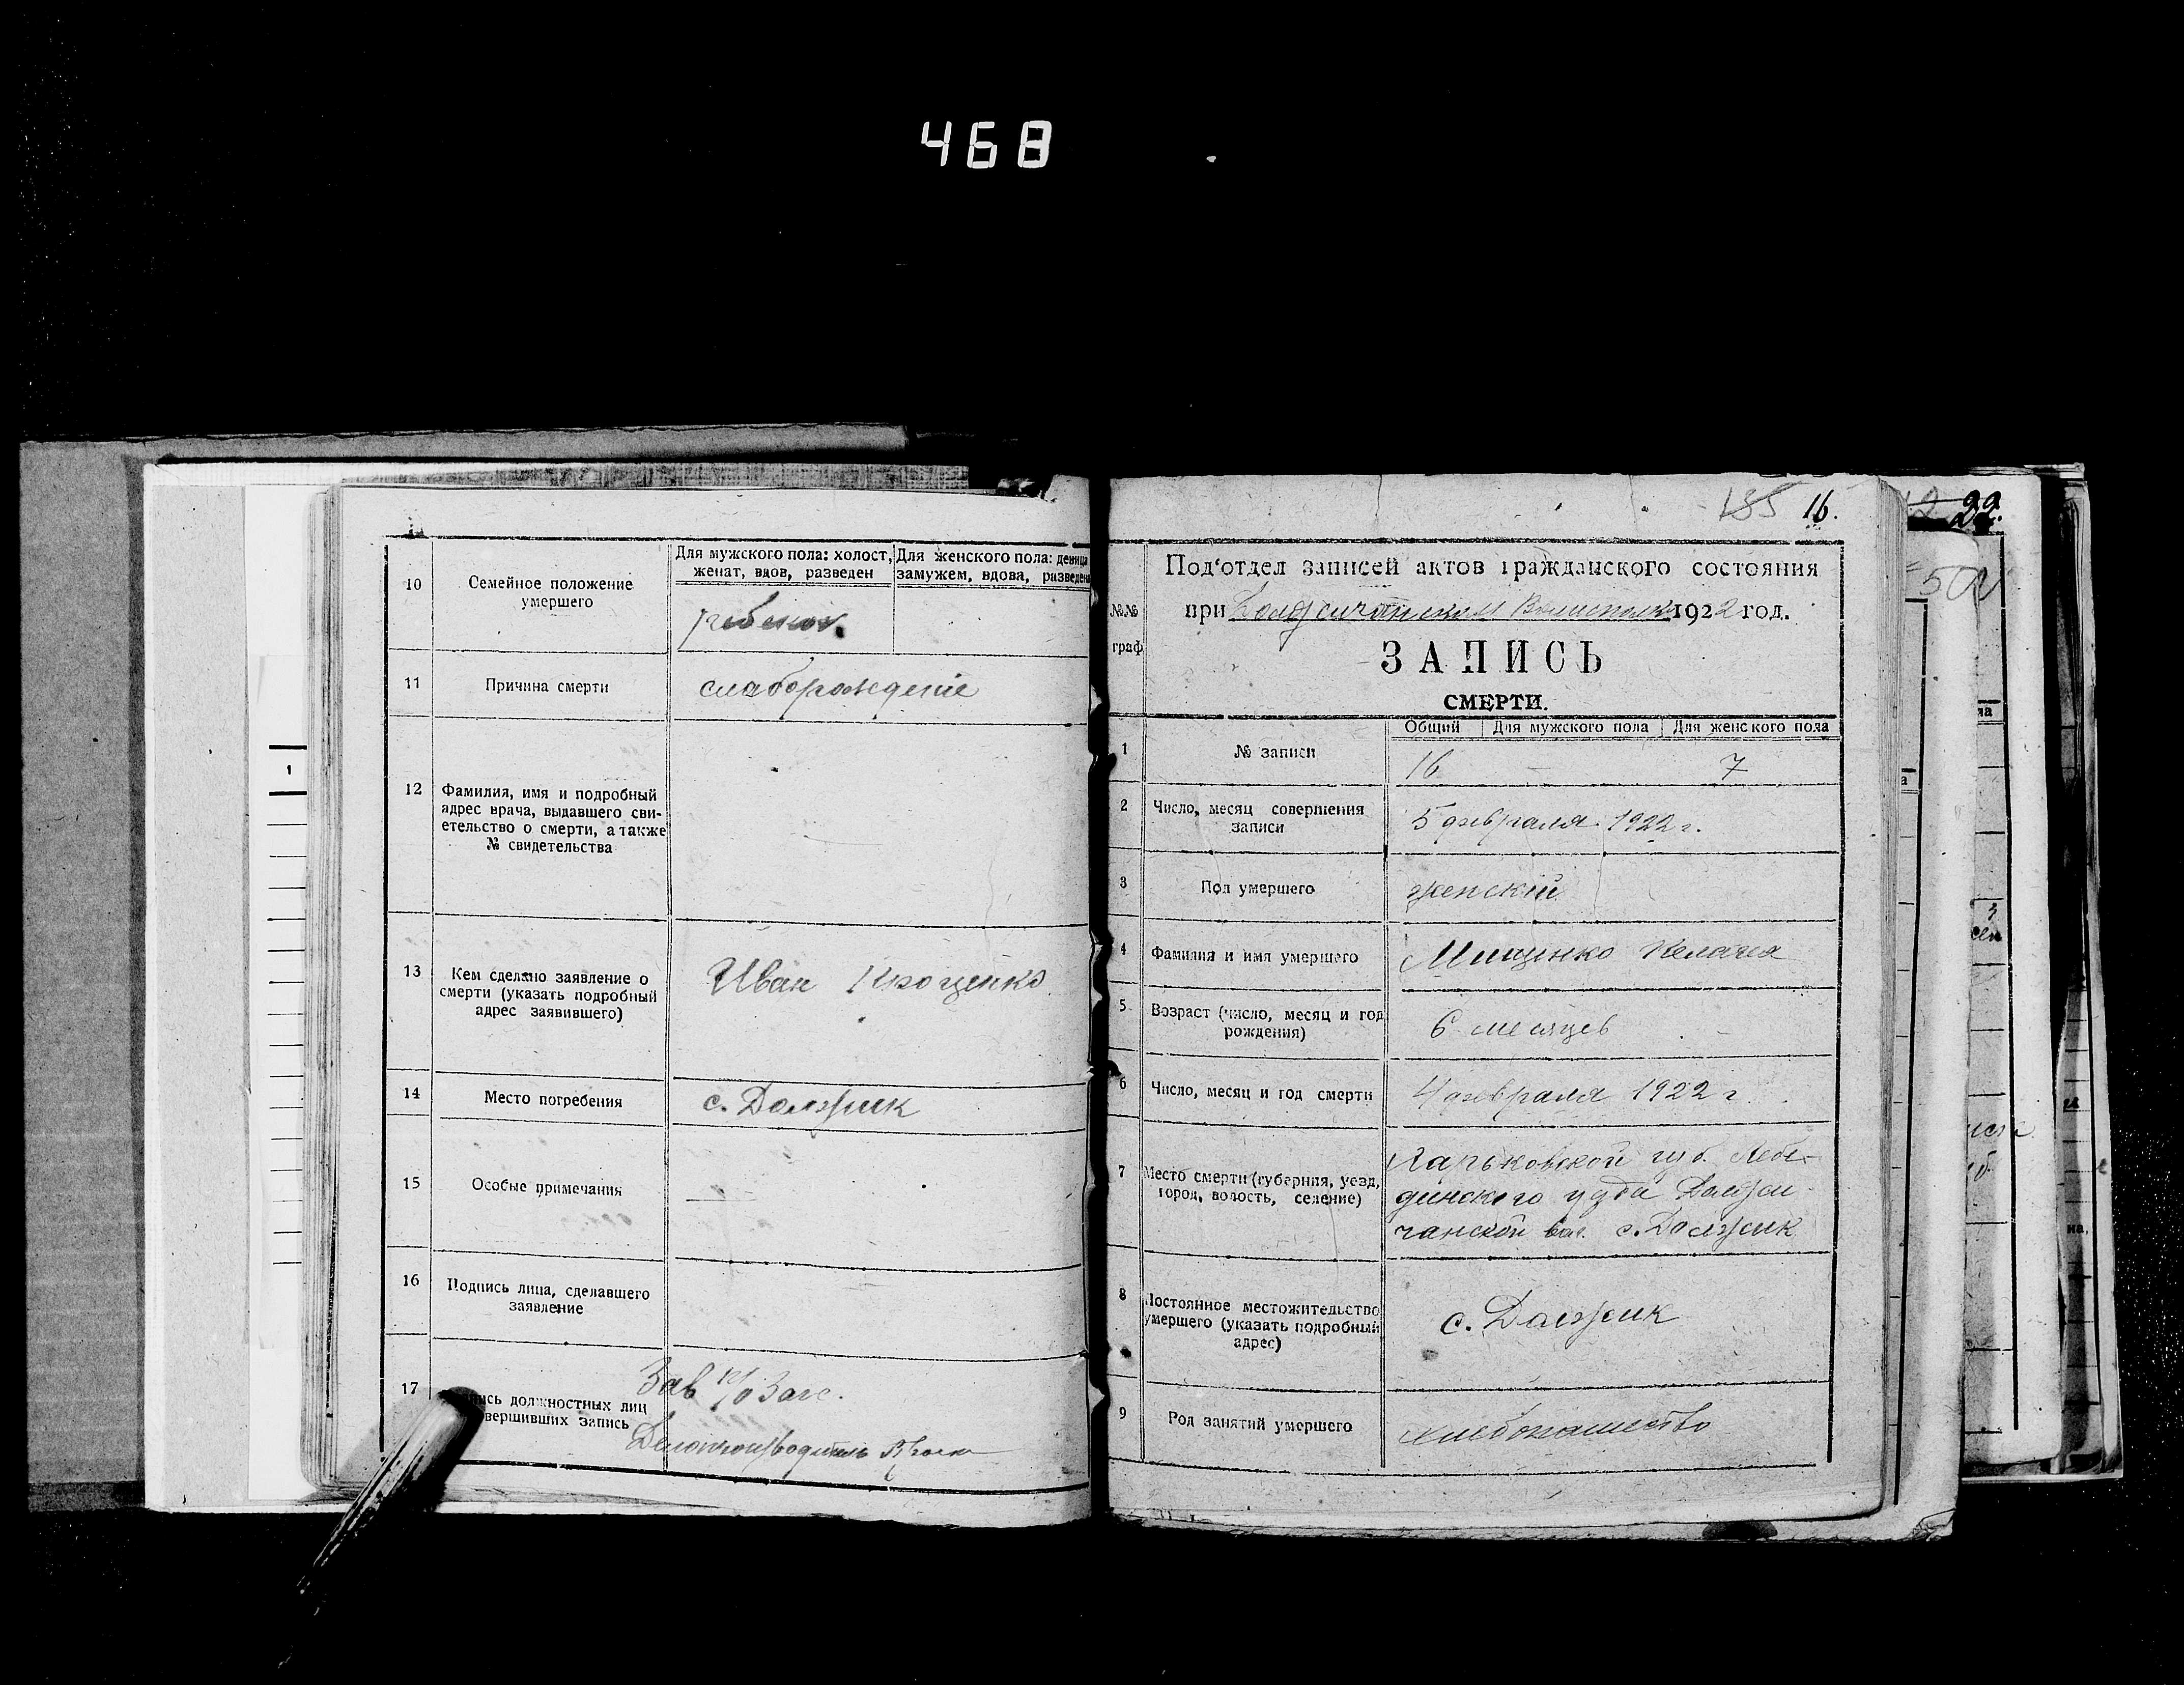 468
10
Семейное положение
умершего
Для мужского пола: холост,
женат, вдов, разведен
Для женского пола: девица
замужем, вдова, разведена
ребенок.
11
Причина смерти
слаборождение
12
Фамилия, имя и подробный
адрес врача, выдавшего сви-
етельство о смерти, а также
№ свидетельства
13
Кем сделано заявление о
смерти (указать подробный
адрес заявившего)
Иван Кроценко
14
Место погребения
с. Должик
15
Особые примечания
16
Подпись лица, сделавшего
заявление
17
ись должностных лиц
вершивших запись
Зав п/о Загс.
Делопроизводитель
1
185 16.
22.
№№
граф
Под'отдел записей актов гражданского состояния
при Должичанском Волисполк 1922 год.
ЗАПИСЬ
СМЕРТИ.
1
№ записи
Общий Для мужского пола Для женского пола
16 — 7
2
Число, месяц совершения
записи
5 февраля 1922 г.
3
Пол умершего
женский
4
Фамилия и имя умершего
Мищенко Пелагея
5
Возраст (число, месяц и год
рождения)
6 месяцев
6
Число, месяц и год смерти
4 февраля 1922 г.
7
Место смерти (губерния, уезд,
город, волость, селение)
Харьковской губ. Лебе-
динского уезда Должи
чанской вол. с. Должик
8
Постоянное местожительство
умершего (указать подробный
адрес)
с. Должик
9
Род занятий умершего
хлебопашество